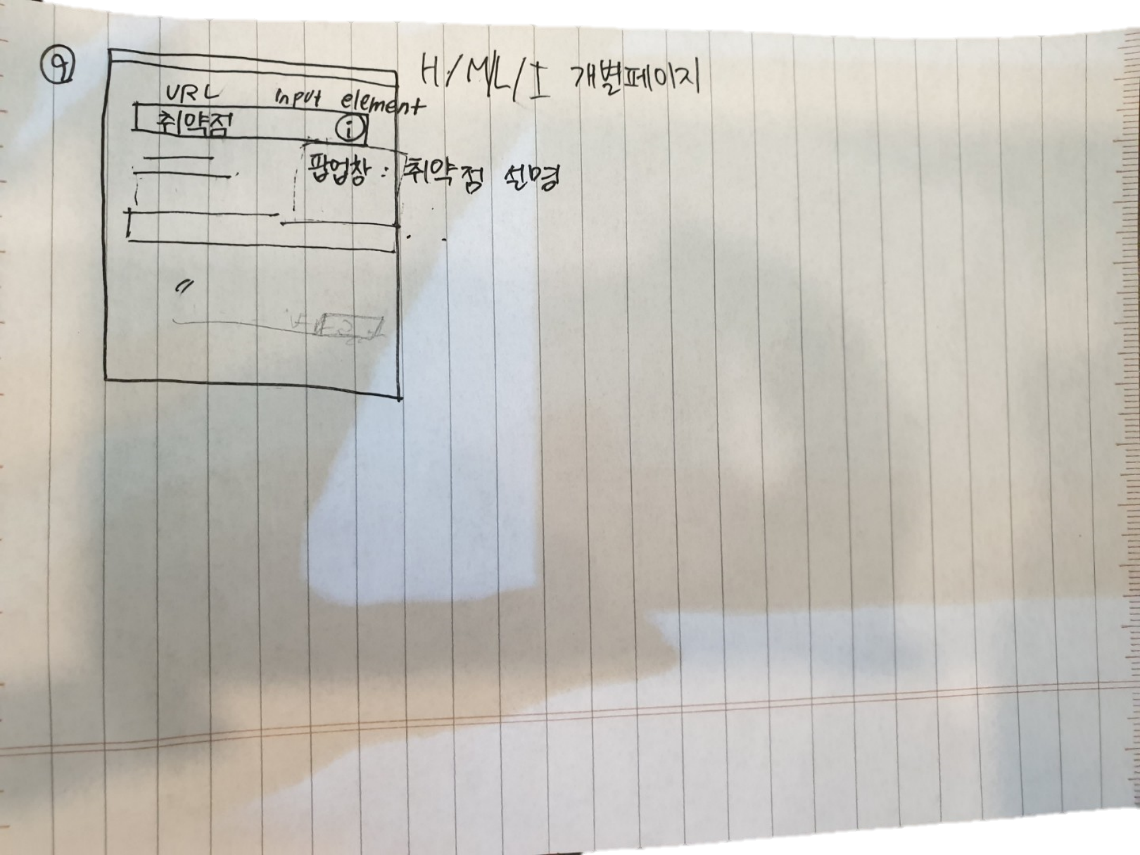 ⑨
H/M/L/I 개별페이지
URL input element
취약점 ⓘ
팝업창 : 취약점 설명
〃